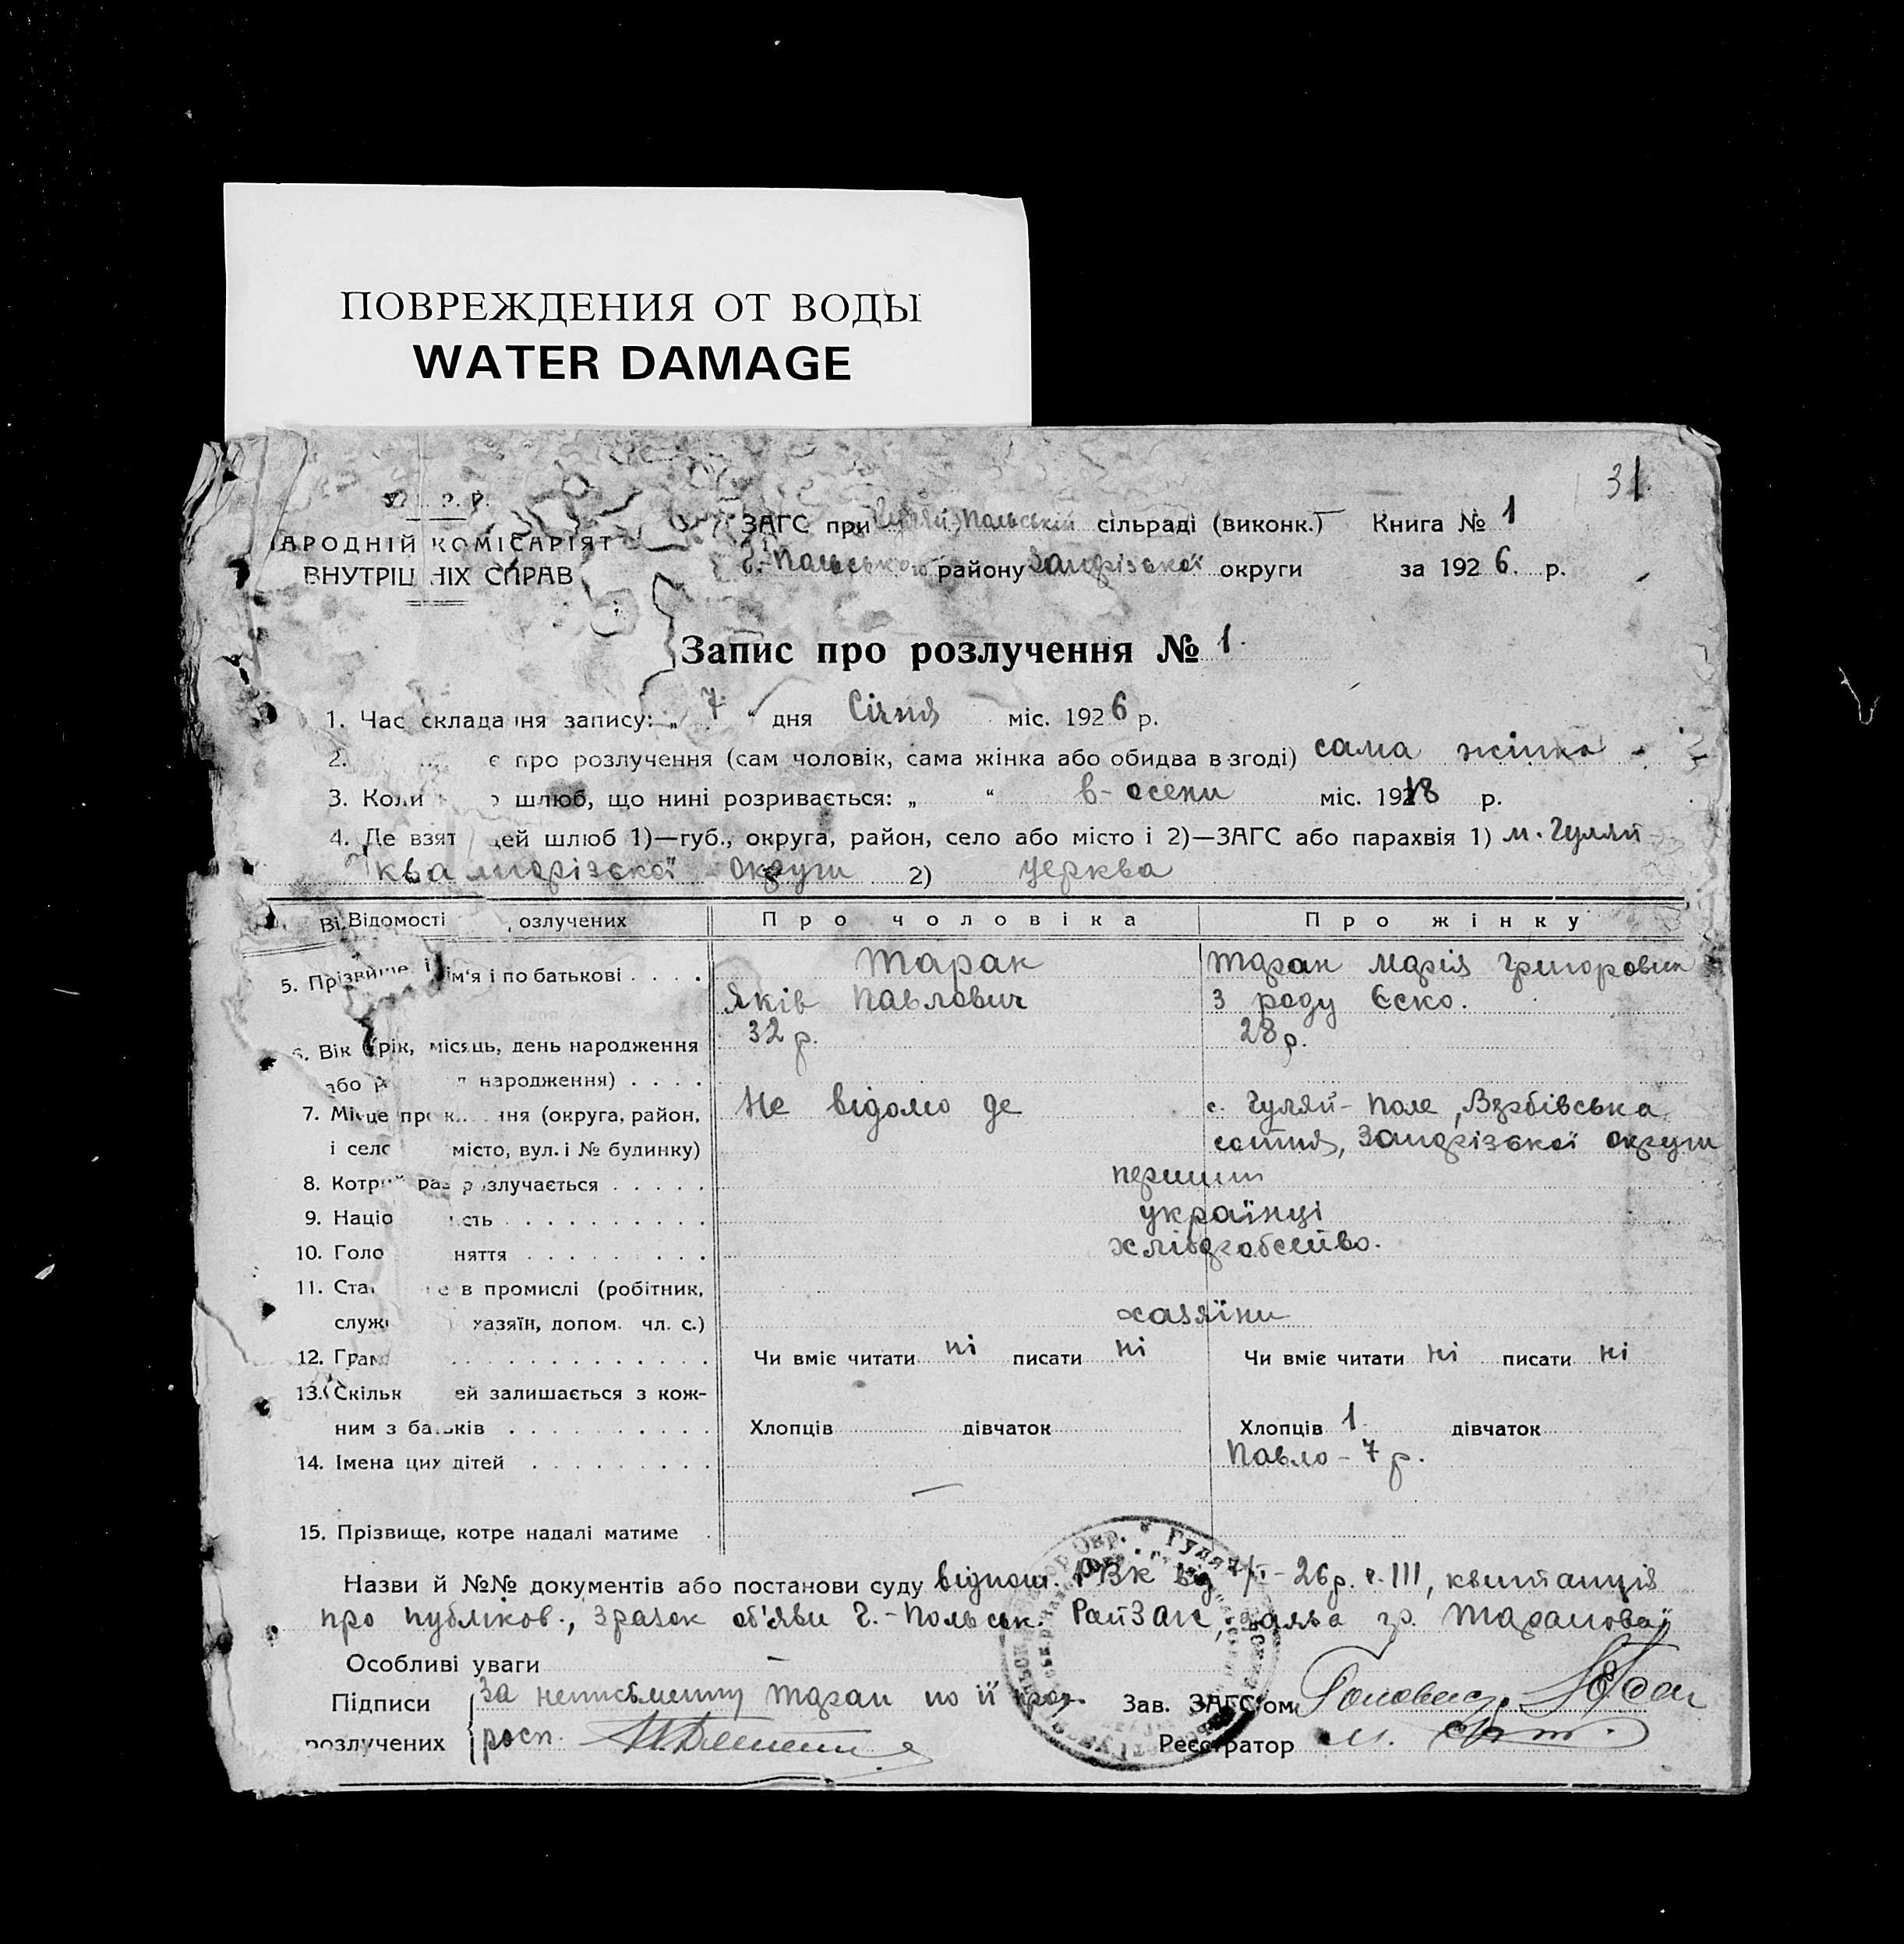 ПОВРЕЖДЕНИЯ ОТ ВОДЫ
WATER DAMAGE
31.
АРОДНІЙ КОМІСАРІЯТ
ВНУТРІШНІХ СПРАВ
ЗАГС при Гуляй-Польській сільраді (виконк.) Книга № 1
Г.-Польського району Запорізької округи за 1926. р.
Запис про розлучення № 1.
1. Час складання запису: „ 7 “ дня Січня міс. 1926 р.
2. є про розлучення (сам чоловік, сама жінка або обидва в згоді) сама жінка
3. Коли шлюб, що нині розривається: „ “ в-осени міс. 1918 р.
4. Де взят цей шлюб 1)—губ., округа, район, село або місто і 2)—ЗАГС або парахвія 1) м. Гуляй-
округи 2) церква
Відомості озлучених
Про чоловіка
Про жінку
5. Прізвище, ім'я і по батькові . . . .
Таран
Яків Павлович
Таран Марія Григоровна
з роду Єско.
6. Вік (рік, місяць, день народження
або народження) . . . .
32 р.
28 р.
7. Місце про ння (округа, район,
і село місто, вул. і № будинку)
Не відомо де
с. Гуляй-Поле, Вербівська
сотня, Запорізької округи
8. Котрий раз розлучається . . . . .
перший
9. Націо сть . . . . . . . . . .
українці
10. Голо няття . . . . . . . . .
хліборобство.
11. Ста е в промислі (робітник,
служ хазяїн, допом. чл. с.)
хазяїни
12. Грам . . . . . . . . . . . . .
Чи вміє читати ні писати ні
Чи вміє читати ні писати ні
13. Скільк ей залишається з кож-
ним з батьків . . . . . . . . . .
Хлопців дівчаток
Хлопців 1 дівчаток
14. Імена цих дітей . . . . . . . . .
Павло - 7 р.
15. Прізвище, котре надалі матиме .
Назви й №№ документів або постанови суду віднош. РВК від 7/I-26 р. ч. 111, квитанція
про публіков., зразок об'яви Г.-Польськ. РайЗАГС, заява гр. Таранової
Особливі уваги –
Підписи
розлучених
за неписьменну Таран по її про.
росп.
Зав. ЗАГС'ом
Реєстратор